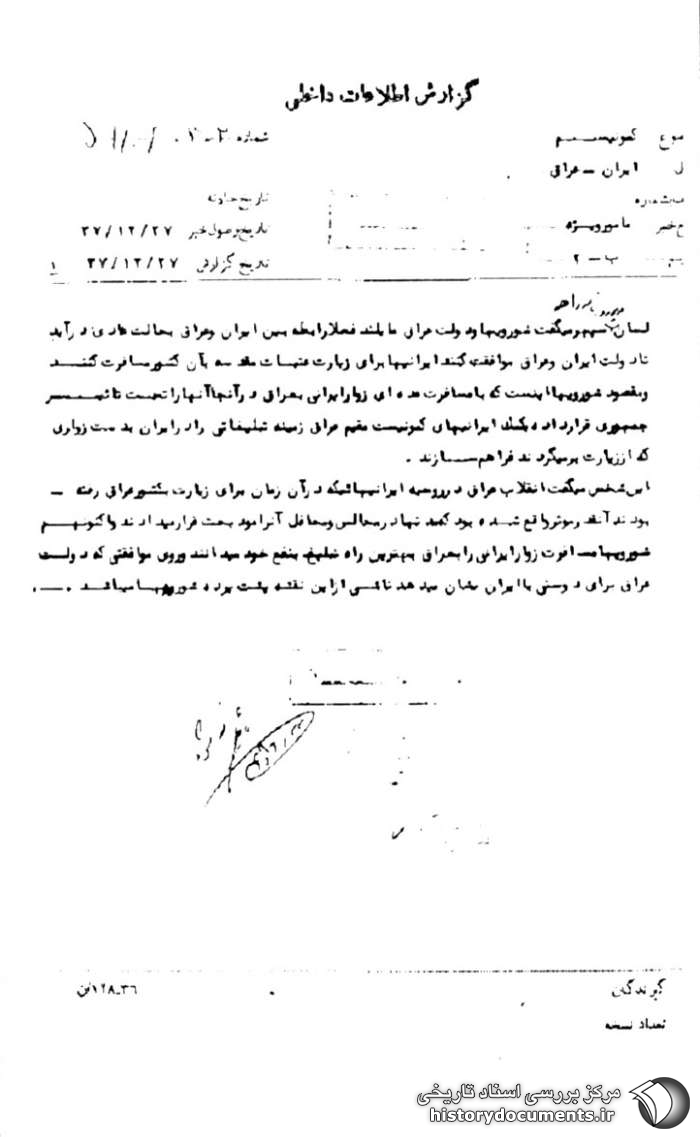 گزارش اطلاعات داخلی
موضوع کمونیسم شماره
ایران - عراق
تاریخ حادثه
مامور ویژه تاریخ وصول خبر ۳۷/۱۲/۲۷
ب - ۲ تاریخ گزارش ۳۷/۱۲/۲۷ ۱
میگفت شورویها و دولت عراق مایلند فعلا رابطه بین ایران و عراق بحالت عادی درآید
تا دولت ایران و عراق موافقت کنند ایرانیها برای زیارت عتبات مقدسه بآن کشور مسافرت کنند
و مقصود شورویها اینست که با مسافرت عده ای زوار ایرانی بعراق در آنجا آنها را تحت تاثیر
جمهوری قرار داده بکمک ایرانیهای کمونیست مقیم عراق زمینه تبلیغاتی را در ایران بدست زواری
که از زیارت برمیگردند فراهم سازند .
این شخص میگفت انقلاب عراق در روحیه ایرانیهائیکه در آن زمان برای زیارت بکشور عراق رفته -
بودند آنقدر موثر واقع شده بود که در مجالس و محافل آنرا مورد بحث قرار میدادند و اکنون هم
شورویها مسافرت زوار ایرانی را بعراق بهترین راه تبلیغ بنفع خود میدانند و روی موافقتی که دولت
عراق برای دوستی با ایران نشان میدهد ناشی از این نقشه پشت پرده شورویها میباشد .
گیرندگان ۱۲۸-۳۶
تعداد نسخه
مرکز بررسی اسناد تاریخی
historydocuments.ir